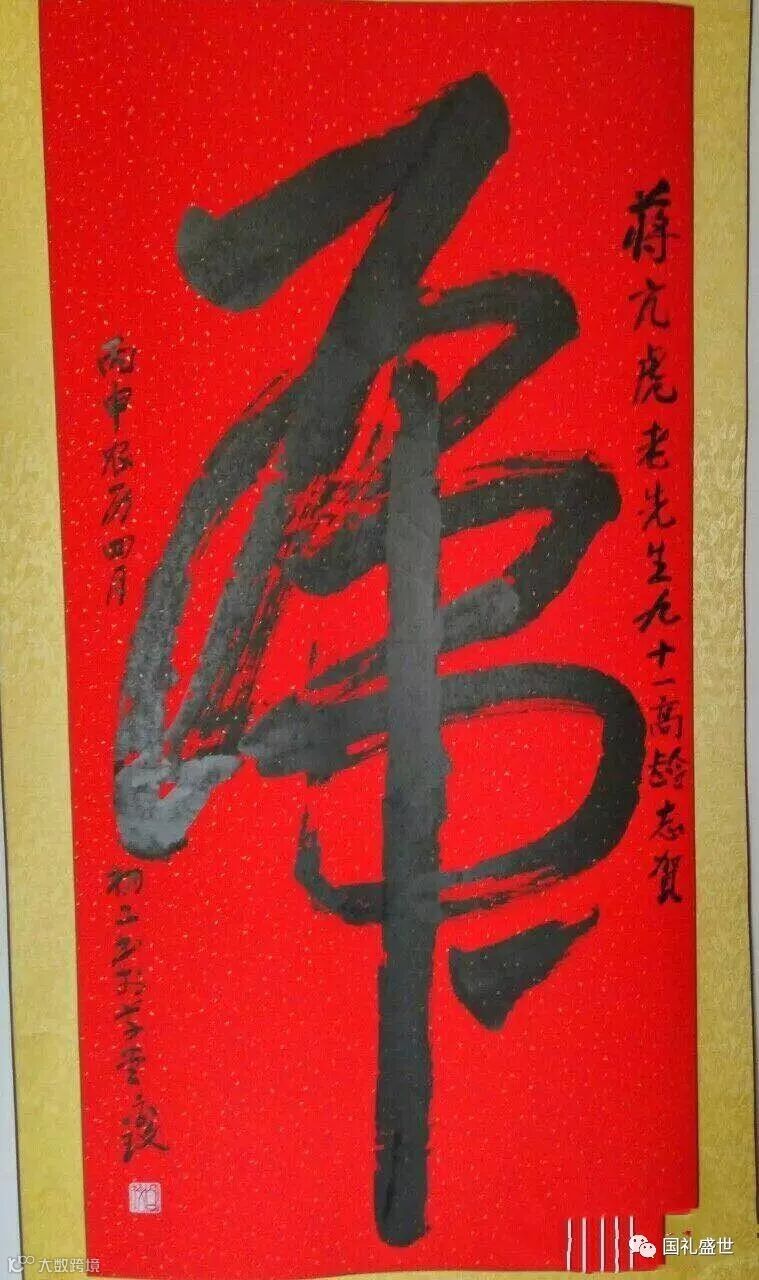 蒋亢虎老先生九十一高龄志贺
丙申农历四月
初三 草堂
大数跨境
国礼盛世